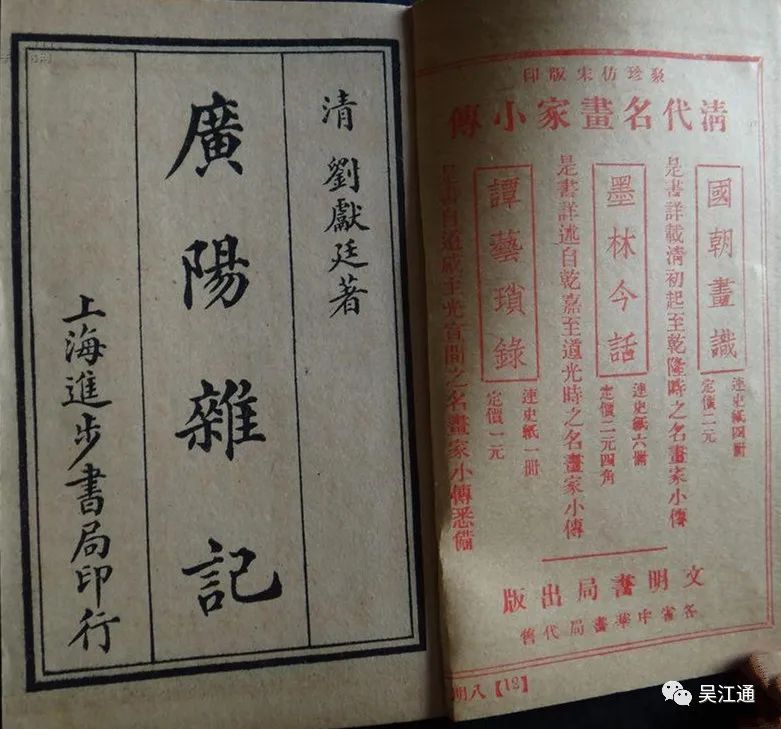 聚珍仿宋版印
清代名畫家小傳
國朝畫識
連史紙四冊
定價二元
是書詳載清初起至乾隆時之名畫家小傳
墨林今話
連史紙六冊
定價二元四角
是書詳述自乾嘉至道光時之名畫家小傳
譚藝瑣錄
連史紙一冊
定價一元
是書自道咸至光宣間之名畫家小傳悉備
文明書局出版
各省中華書局代售
【12】八
清 劉獻廷著
廣陽雜記
上海進步書局印行
吴江通